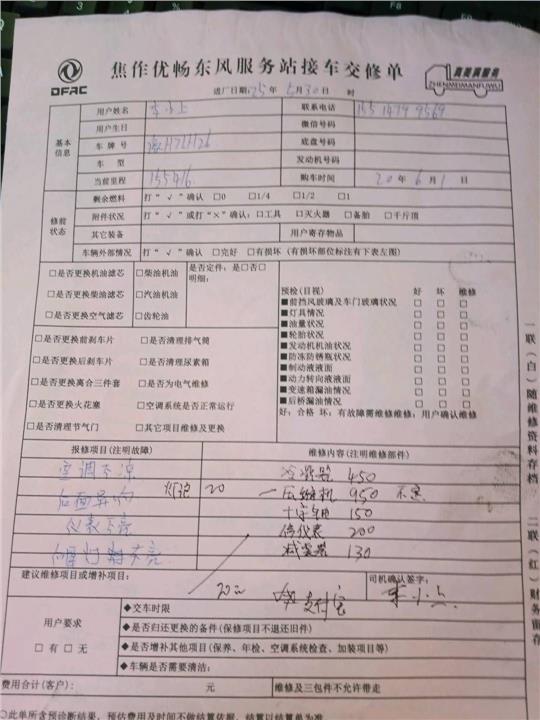 DFAC
焦作优畅东风服务站接车交修单
真美真服务
ZHENMEIMANFUWU
进厂日期:25年5月30日 时
基本信息
用户姓名 联系电话
用户生日 微信号码
车 牌 号 底盘号码
车 型 发动机号码
当前里程 155416 购车时间 20年6月1日
修前状态
剩余燃料 打“√”确认 □0 □1/4 □1/2 □1
附件状况 打“√”或打“×”确认:□工具 □灭火器 □备胎 □千斤顶
其它装备 用户寄存物品
车辆外部情况 打“√”确认 □完好 □有损坏(有损坏部位标注有下表左图)
□是否更换机油滤芯 □柴油机油 是否定件:是□否□
明细:
□是否更换柴油滤芯 □汽油机油
□是否更换空气滤芯 □齿轮油
□是否更换前刹车片 □是否清理排气筒
□是否更换后刹车片 □是否清理尿素箱
□是否更换离合三件套 □是否为电气维修
□是否更换火花塞 □空调系统是否正常运行
□是否清理节气门 □其它项目维修及更换
预检(目视) 好 坏 维修
■前挡风玻璃及车门玻璃状况 □ □ □
■灯具情况 □ □ □
■油量状况 □ □ □
■轮胎状况 □ □ □
■发动机机油状况 □ □ □
■防冻防锈瓶状况 □ □ □
■制动液液面 □ □ □
■动力转向液液面 □ □ □
■变速箱漏油情况 □ □ □
■后桥漏油情况 □ □ □
好:合格 坏:有故障需维修维修:用户确认维修
报修项目(注明故障) 维修内容(注明维修部件)
空调不凉 冷凝器 450
后面异响 灯泡 20 压缩机 950
仪表不亮 十字轴 150
修仪表 200
减震器 130
建议维修项目或增补项目: 司机确认签字:
支付宝
用户要求
□有 □无
◆交车时限
◆是否归还更换的备件(保修项目不退还旧件)
◆是否增补其他项目(保养、年检、空调系统检查、加装项目等)
◆车辆是否需要清洁:
费用合计(客户): 元 维修及三包件不允许带走
○此单所含预诊断结果,预估费用及时间不做结算依据,结算以结算单为准
一联(白)随维修资料存档
二联(红)财务留存